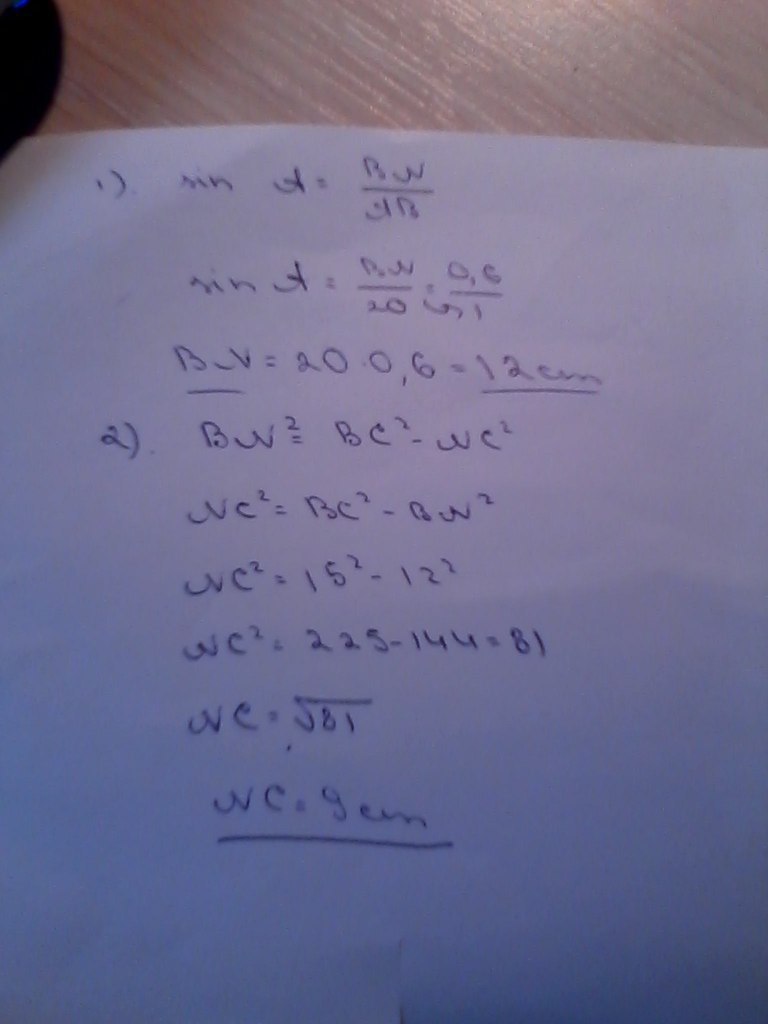 1). sin A = BN/AB
sin A = BN/20 = 0,6/1
BN = 20·0,6 = 12cm
2). BN² = BC² - NC²
NC² = BC² - BN²
NC² = 15² - 12²
NC² = 225-144 = 81
NC = √81
NC = 9cm